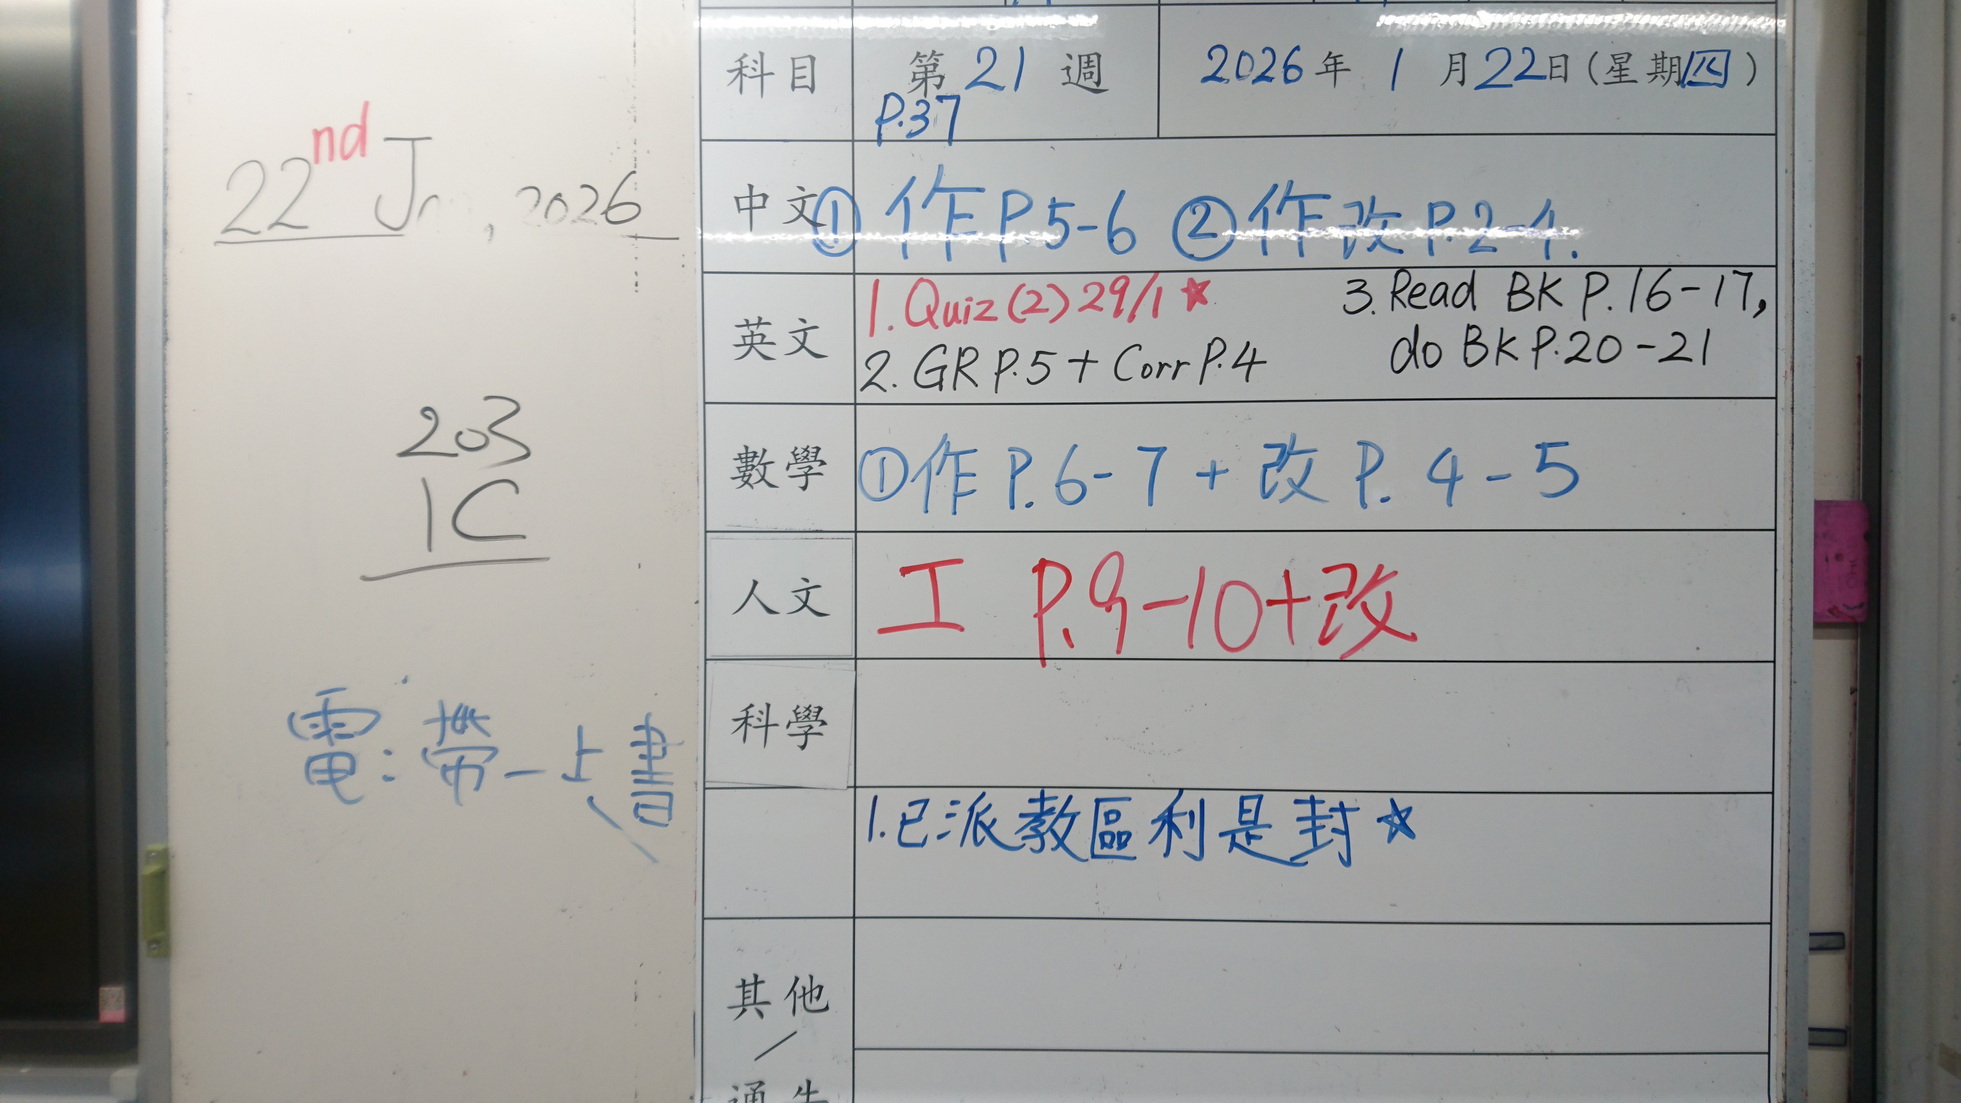 22nd J , 2026
203
1C
電：帶一上書
科目 第 21 週 2026年 1 月22日(星期四)
P.37
中文 ① 作 P.5-6 ② 作改 P.2-4.
英文 1. Quiz (2) 29/1 ★ 3. Read BK P.16-17,
2. GR P.5 + Corr P.4 do BK P.20-21
數學 ①作 P.6-7 + 改 P. 4-5
人文 工 P.9-10+改
科學
1.已派教區利是封 ☆
其他
／
通告